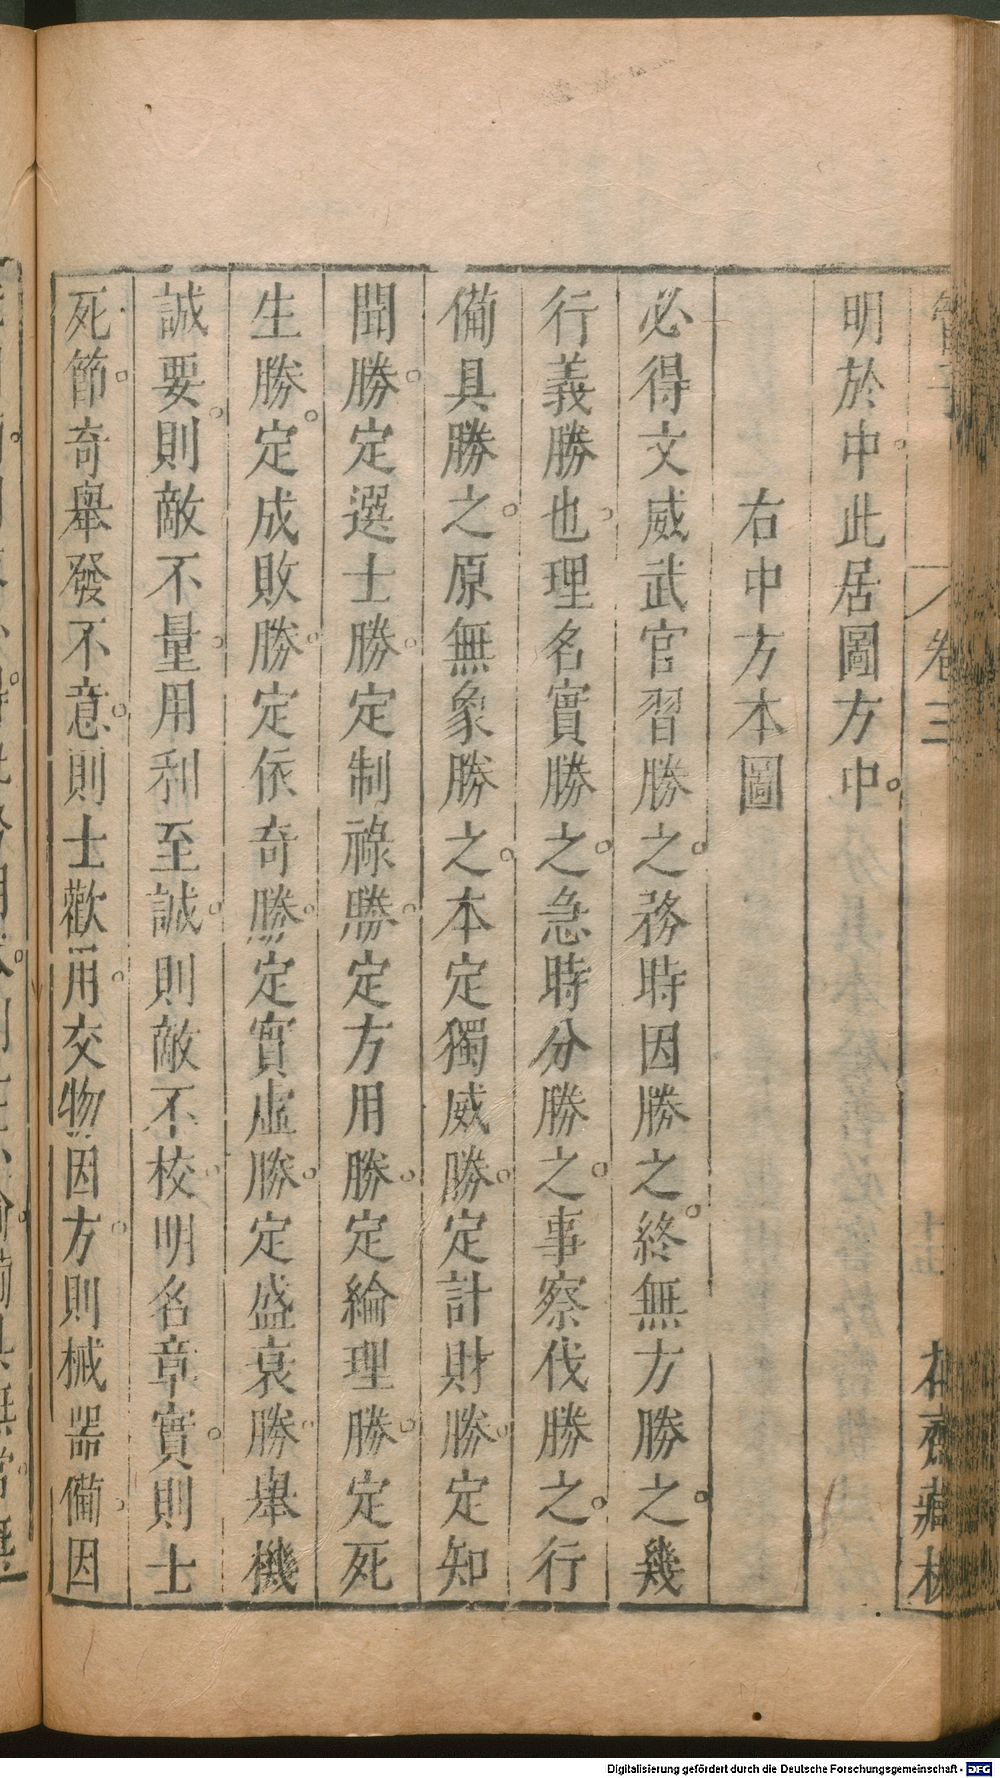 管子
卷三
十五
花齋藏板
明於中此居圖方中。
右中方本圖
必得文威武官習勝之。務時因勝之終。無方勝之。幾
行義勝也。理名實勝之。急時分勝之。事察伐勝之。行
備具勝之。原無象勝之。本定獨威勝。定計財勝。定知
聞勝。定選士勝。定制祿勝。定方用勝。定綸理勝。定死
生勝。定成敗勝。定依奇勝。定實虛勝。定盛衰勝。舉機
誠要。則敵不量。用利至誠。則敵不校。明名章實。則士
死節。奇舉發不意。則士歡用。交物因方。則械器備。因
Digitalisierung gefördert durch die Deutsche Forschungsgemeinschaft - DFG